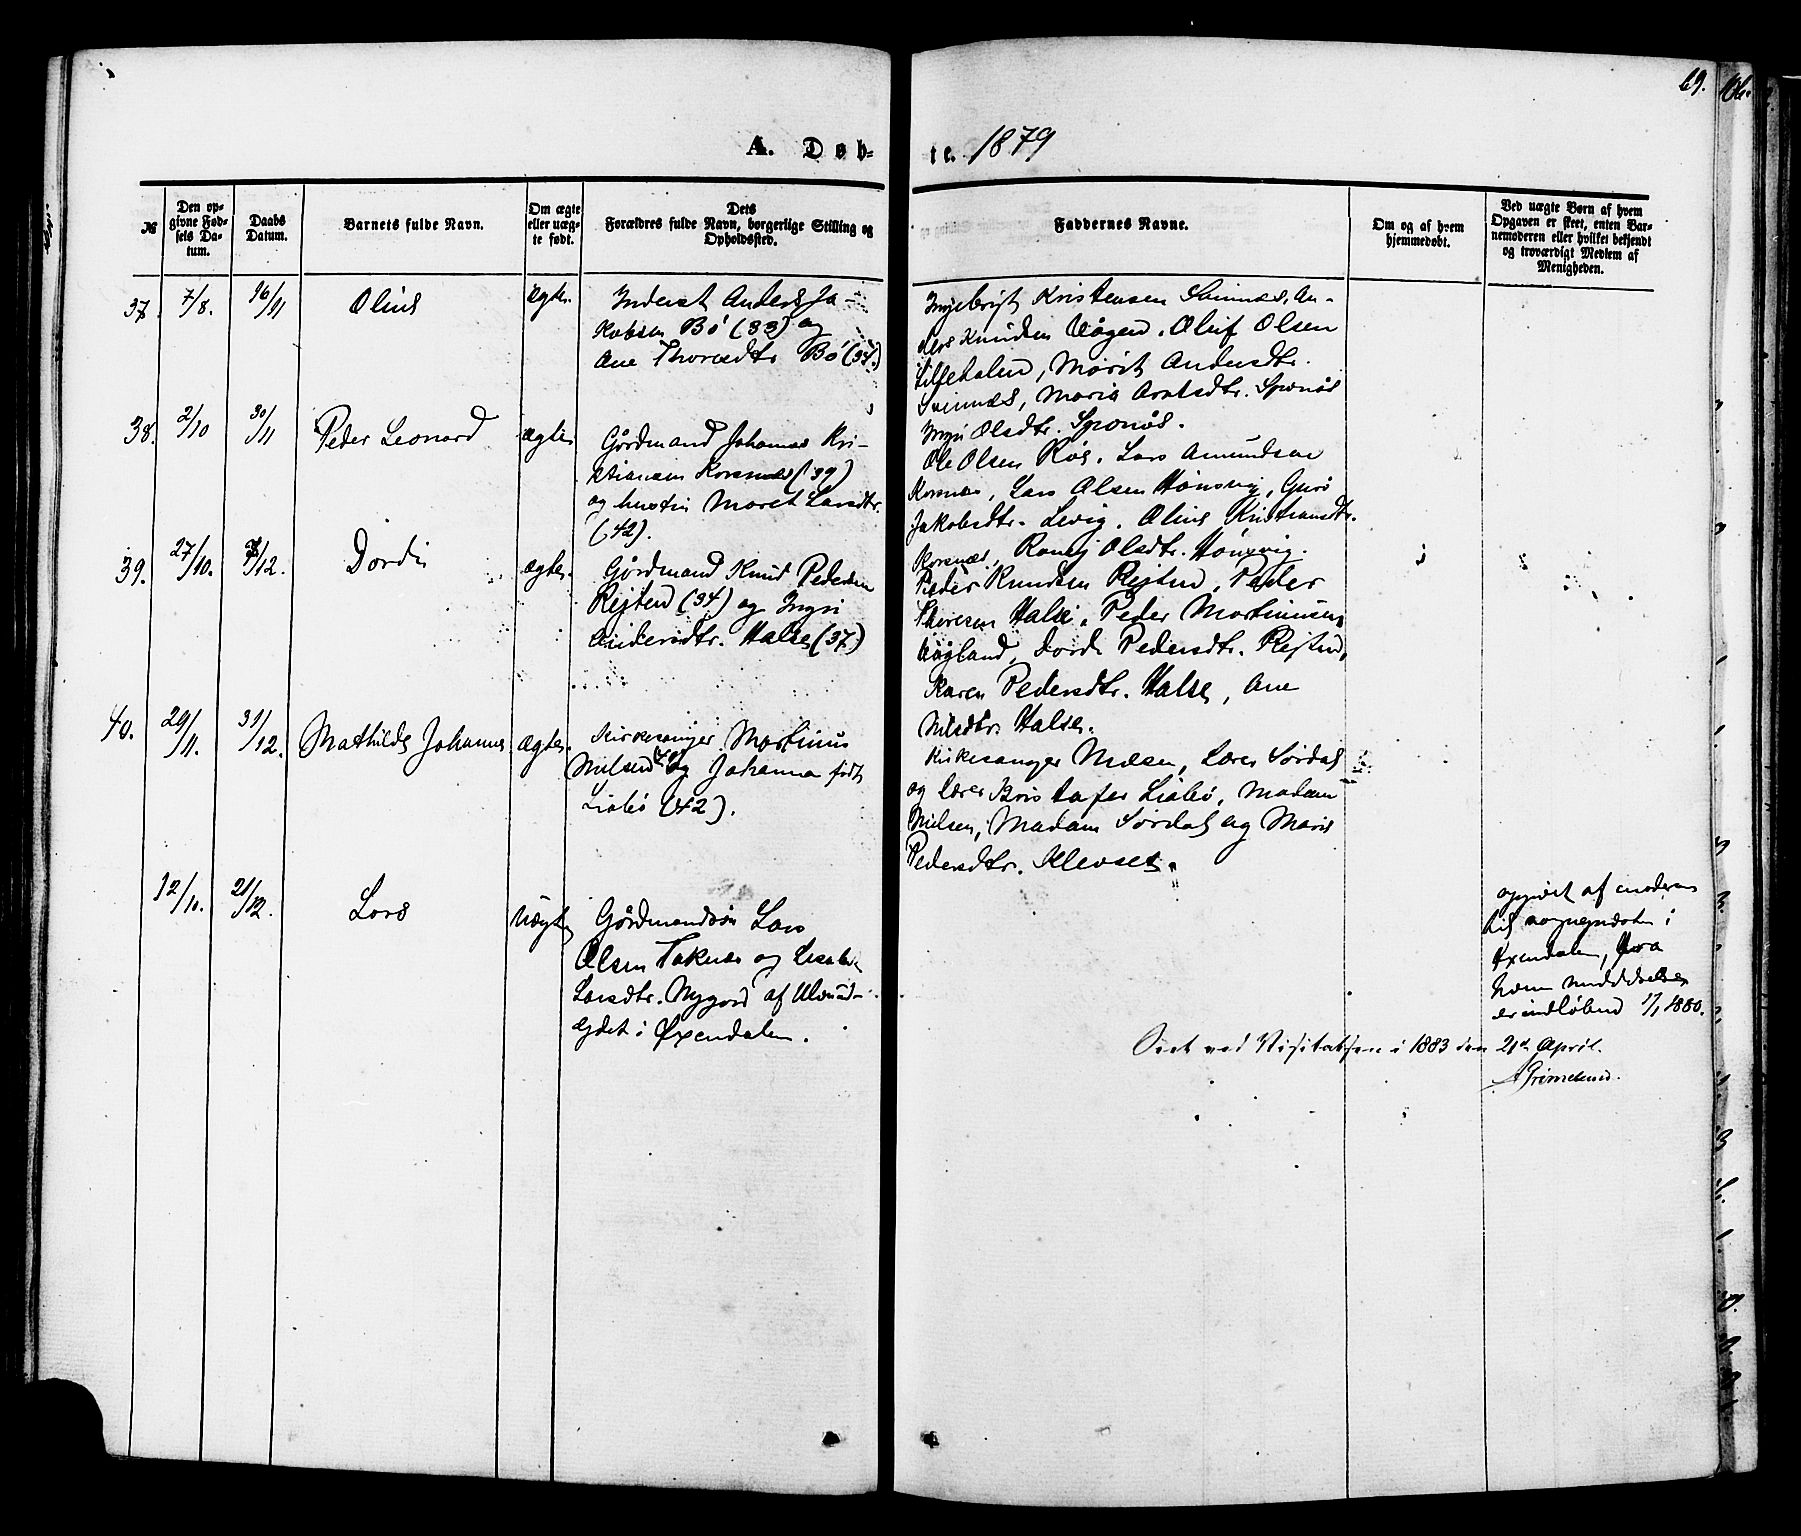 69.
A. Døb-
te. 1879
№
Den op-
givne Fød-
sels Da-
tum.
Daabs
Datum.
Barnets fulde Navn.
Om ægte
eller uæg-
te født.
Dets
Forældres fulde Navn, borgerlige Stilling og
Opholdssted.
Faddernes Navne.
Om og af hvem
hjemmedøbt.
Ved uægte Børn af hvem
Opgaven er skeet, enten Bar-
nemoderen eller hvilket bekjendt
og troværdigt Medlem af
Menigheden.
37. 7/8. 16/11 Olius ægte.
Inderst Anders Ja-
kobsen Bö (33) og
Ane Thoresdtr Bö (34.)
Ingebrigt Kristensen Svinnæs, An-
ders Knudsen Vågen. Oluf Olsen
Lillehalen, Mørit Andersdtr.
Svinnæs, Maria Arntsdtr. Sponås
Ingri Olsdtr. Sponås.
38. 2/10 30/11 Peder Leonard ægte.
Gårdmand Johannes Kri-
stiansen Korsnæs (39)
og hustru Moret Larsdtr.
(42).
Ole Olsen Røs. Lars Amundsen
Korsnæs, Lars Olsen Hønsvig, Guro
Jakobsdtr. Levig. Olius Kristiansdtr.
Korsnæs, Ronej Olsdtr. Hønsvig.
39. 27/10. /12. Dordi ægte.
Gårdmand Knud Pedersen
Rejten (34) og Ingri
Andersdtr. Halse (37.)
Peder Knudsen Rejten, Peder
Thoresen Halse, Peder Martinusen
Vågland, Dordi Pedersdtr. Rejten,
Karen Pedersdtr. Halse, Ane
Nilsdtr. Halse.
40. 29/11. 31/12. Mathilde Johanna ægte.
Kirkesanger Martinus
Nielsen og Johanna født
Liabö (42).
Kirkesanger Nielsen, Lærer Sørdal
og lærer Kristofer Liabø, Madam
Nielsen, Madam Sørdal og Marit
Pedersdtr. Klevset.
12/10. 21/12. Lars Uægte
Gårdmandssön Lars
Olsen Taknæs og
Larsdtr. Nygård af Ulvund-
ejdet i Øxendalen.
opgivet af moderen
til sognepræsten i
Øxendalen, fra
hvem meddelelse
er indløbend 1/1 1880.
Seet ved Visitatsen i 1883 den 21de April.
A Grimelund.